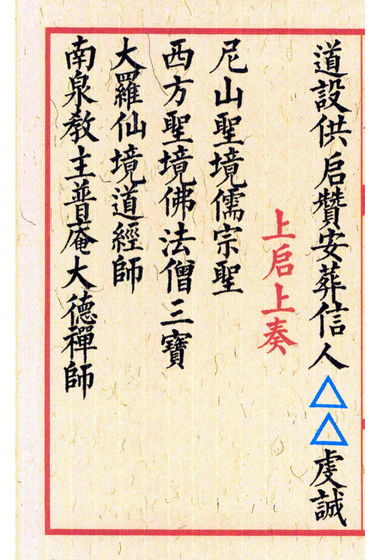 道設供启贊安葬信人△△虔誠
上启上奏
尼山聖境儒宗聖
西方聖境佛法僧三寶
大羅仙境道經師
南泉教主普庵大德禪師